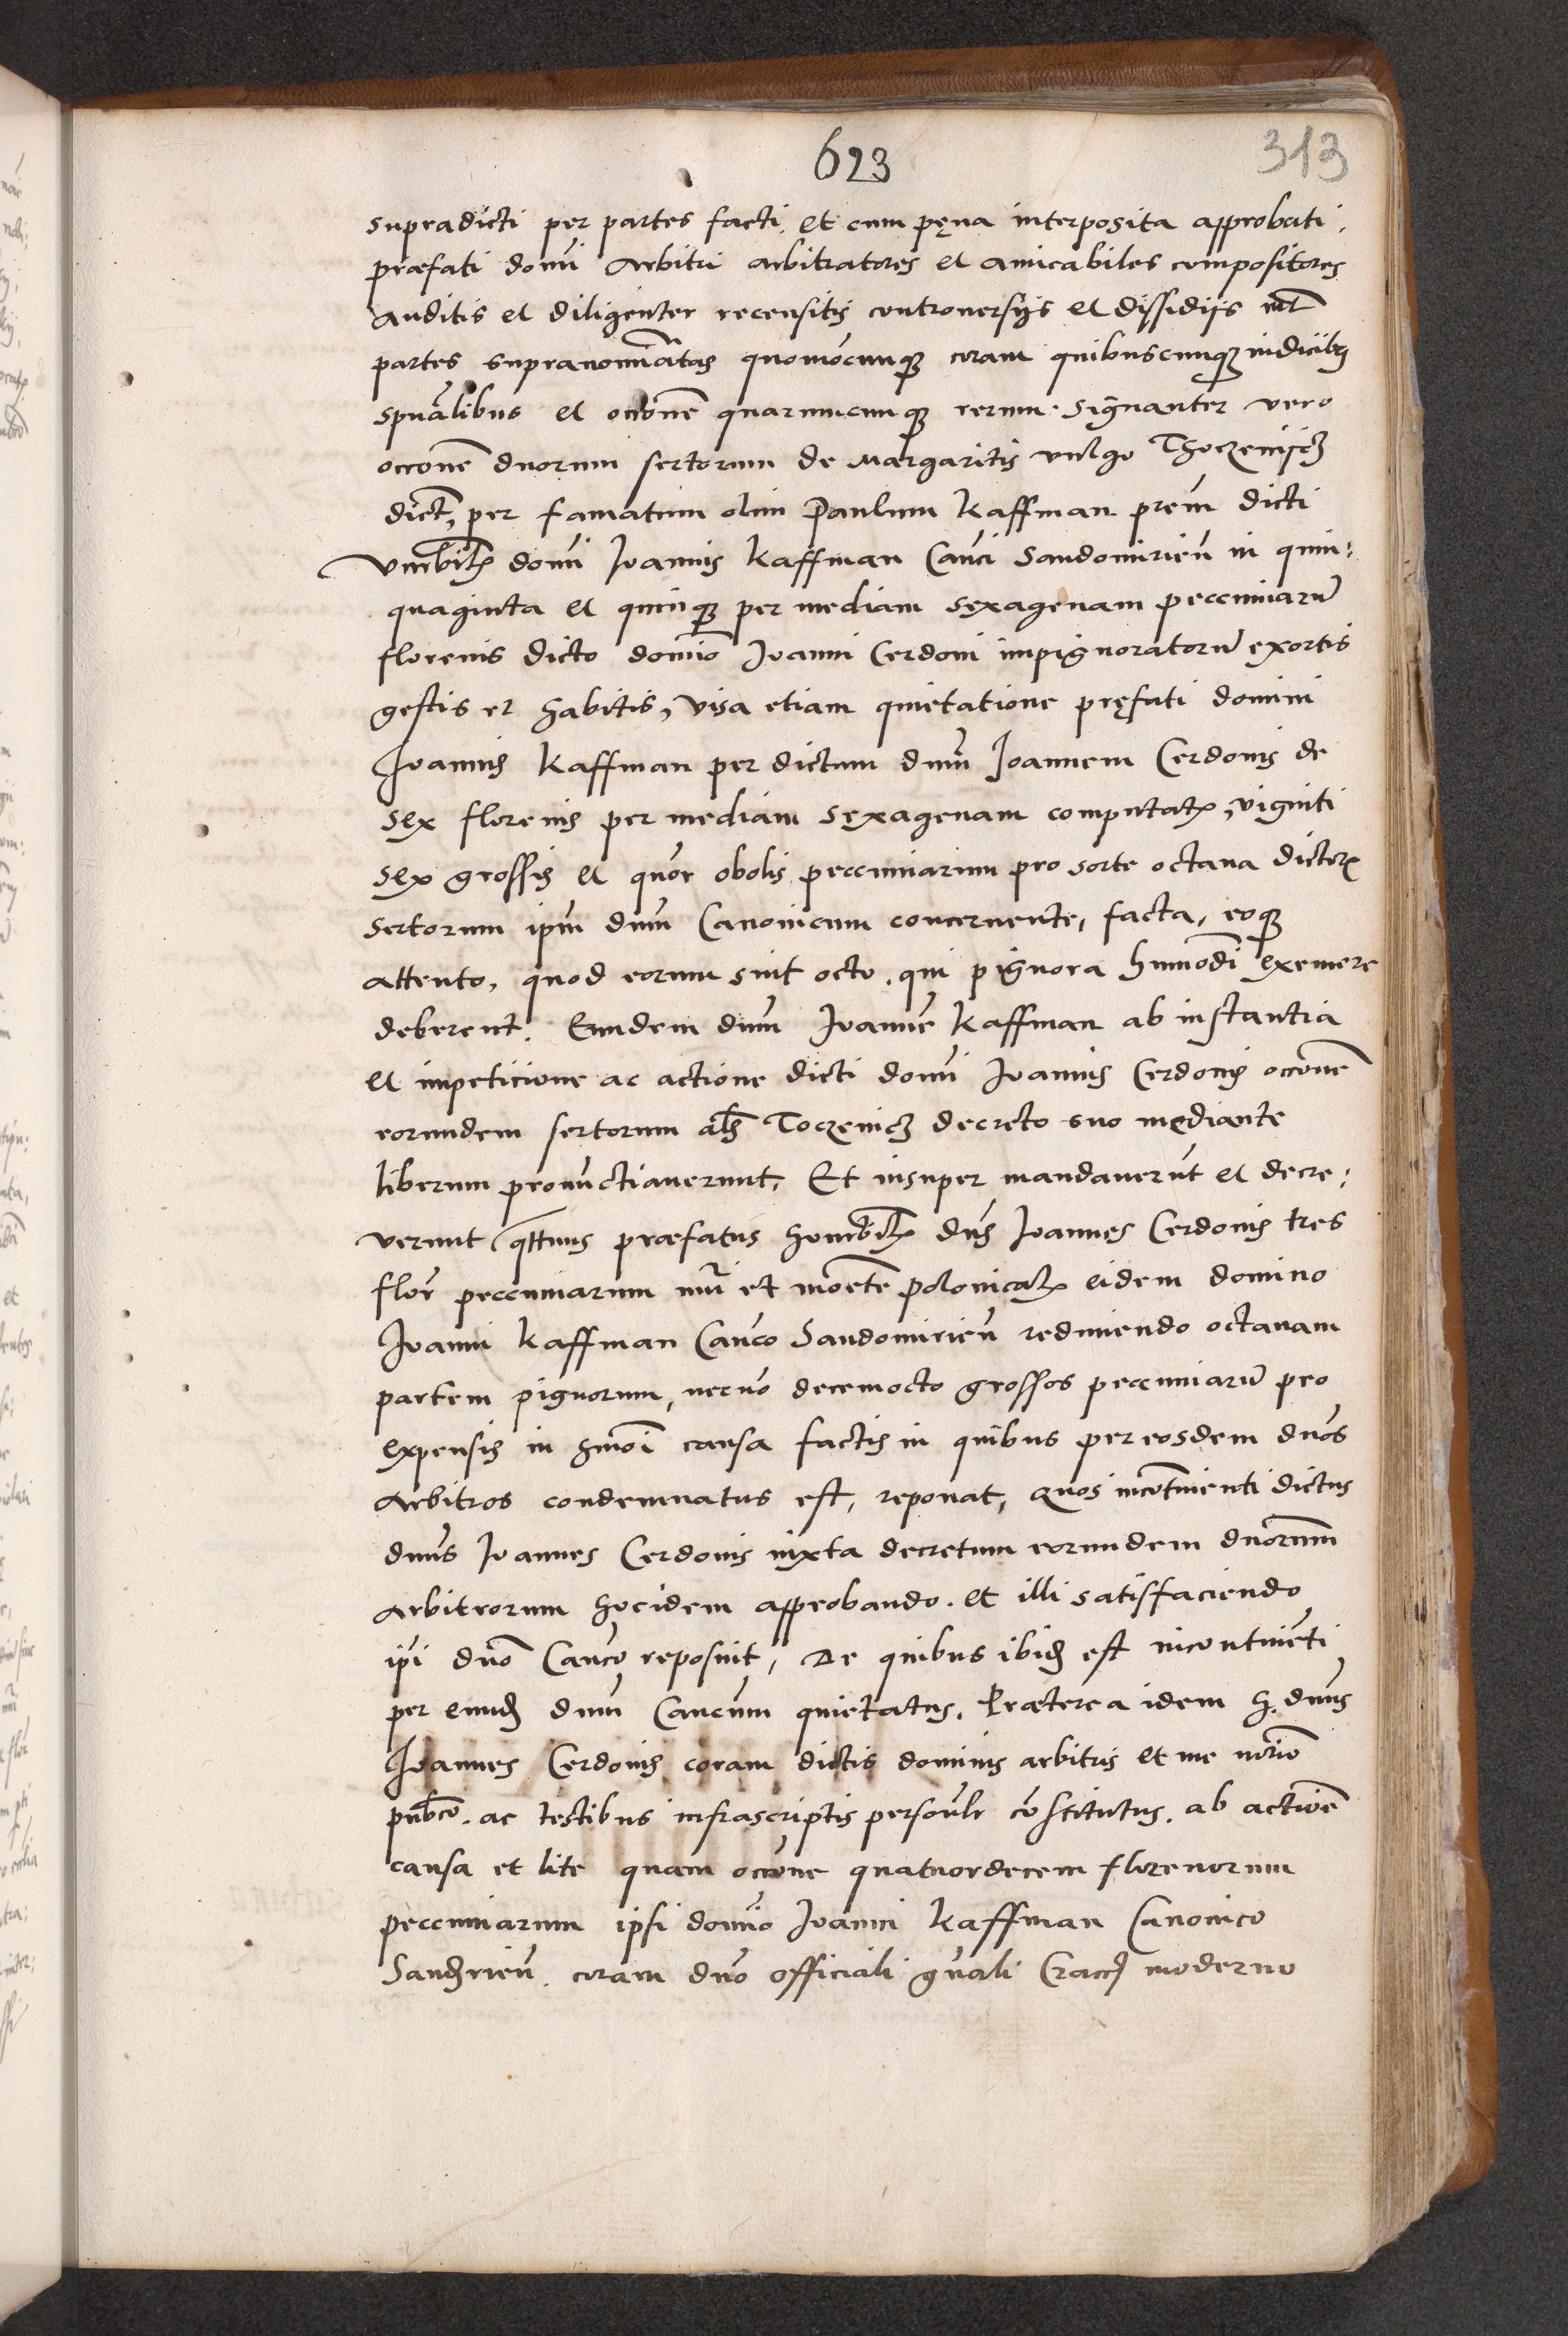 623
313
supradicti per partes facti et cum pęna interposita approbati.
præfati domi Arbitri arbitratores et amicabiles compositores
Auditis et diligenter recensitis controversijs et dissidijs int
partes supranominatas quomocunq coram quibuscunq iudicibus
spualibus et occone quarumcunq rerum. Signanter vero
occone duorum sertorum de Margaritis vulgo
dict, per famatum olim Paulum Kaffman prem dicti
domi Joannis Kaffman Canci Sandomirien in quin:
quaginta et quinq per mediam sexagenam peccuniaru
florenis dicto domino Joanni Cerdoni impignoratoru exortis
gestis et habitis, visa etiam quietatione pręfati domini
Joannis Kaffman per dictum dnum Joannem Cerdonis de
sex florenis per mediam sexagenam computat, viginti
sex grossis et quor obolis peccuniarum pro sorte octava dictor
sertorum ipm dnm Canonicum concernente, facta, eoq
attento, quod eorum sint octo. qui pignora humodi exemere
deberent. Eundem dnm Joanne Kaffman ab instantia
et impeticione ac actione dicti domi Joannis Cerdonis occone
eorundem sertorum als Toczenicz decreto suo mediante
liberum pronunctiaverunt, Et insuper mandaverut et decre:
verunt qttnus præfatus dns Joannes Cerdonis tres
flor peccuniarum nri et monete polonical eidem domino
Joanni Kaffman Canco Sandomirien redimendo octavam
partem pignorum, necno decemocto grossos peccuniaru pro
expensis in hmoi causa factis in quibus per eosdem dnos
Arbitros condemnatus est, reponat, Quos incontinenti dictus
dnus Joannes Cerdonis iuxta decretum eorundem dnorum
Arbitrorum hocidem approbando. et illi satisfaciendo
ipi dno Canco reposuit, De quibus ibid est incontineti
per eund dnm Cancum quietatus. Præterea idem H. dnus
Joannes Cerdonis coram dictis dominis arbitris et me notrio
publico. ac testibus infrascriptis personlr costitutus. ab actione
causa et lite quam occone quatuordecem florenorum
peccuniarum ipsi domio Joanni Kaffman Canonico
Sandrien. coram dno officiali gnali Cracc moderno